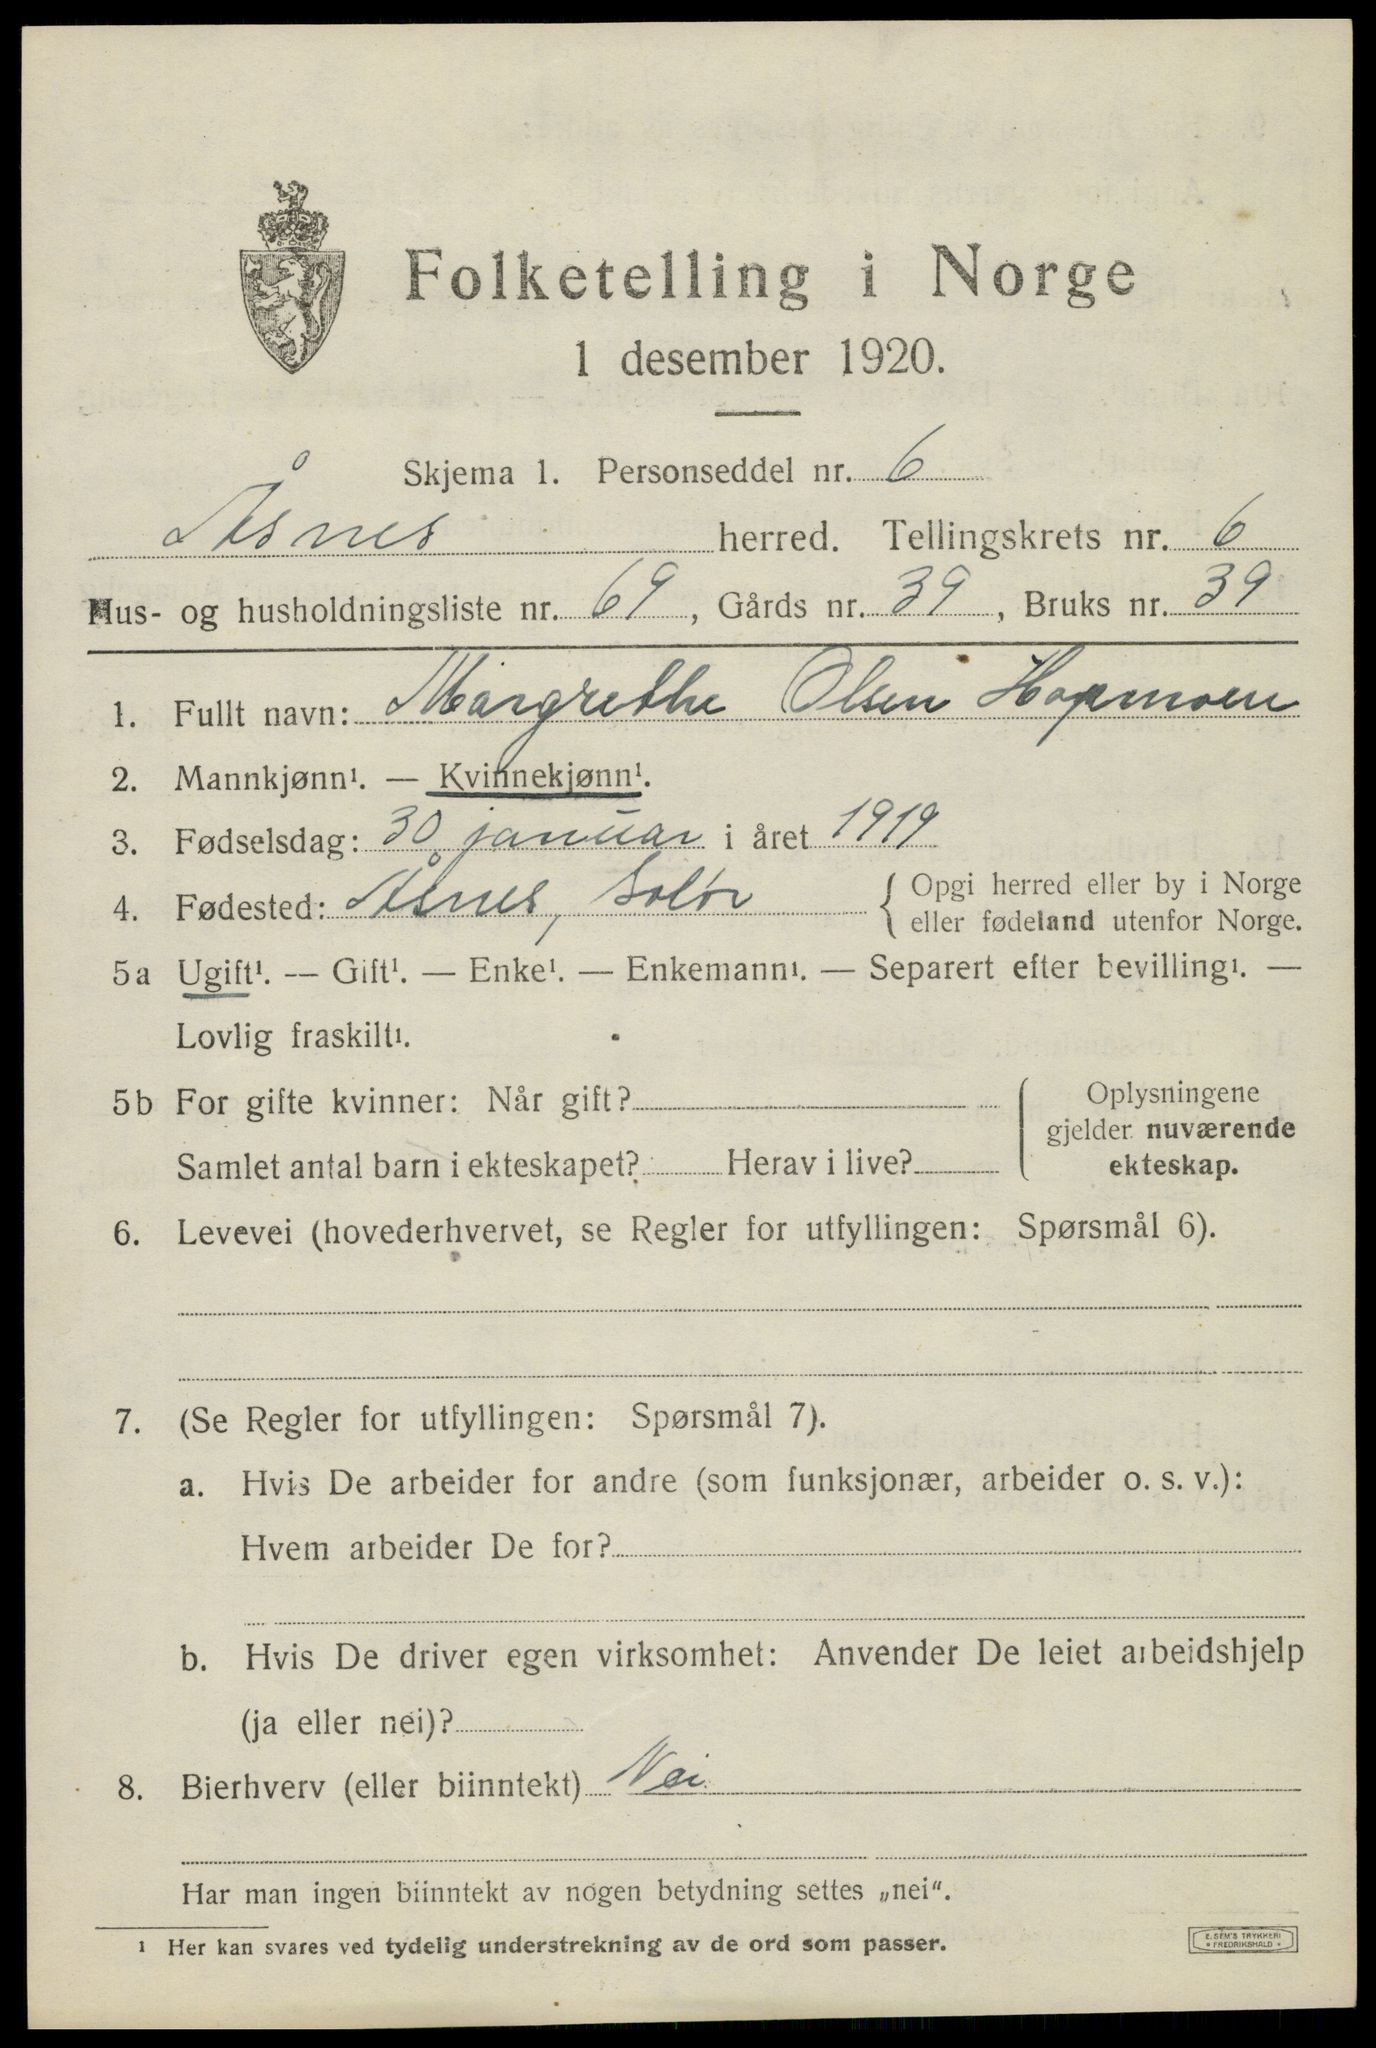 Folketelling i Norge
1 desember 1920.
Skjema 1. Personseddel nr. 6
Åsnes herred. Tellingskrets nr. 6
Hus- og husholdningsliste nr. 69, Gårds nr. 39, Bruks nr. 39
1. Fullt navn: Margrethe Olsen Hapmoen
2. Mannkjønn¹. — Kvinnekjønn¹.
3. Fødselsdag: 30 januar i året 1919
4. Fødested: Åsnes, Solør { Opgi herred eller by i Norge
eller fødeland utenfor Norge.
5a Ugift¹. — Gift¹. — Enke¹. — Enkemann¹. — Separert efter bevilling¹. —
Lovlig fraskilt¹.
5b For gifte kvinner: Når gift?
Samlet antal barn i ekteskapet? Herav i live?
Oplysningene
gjelder nuværende
ekteskap.
6. Levevei (hovederhvervet, se Regler for utfyllingen: Spørsmål 6).
7. (Se Regler for utfyllingen: Spørsmål 7).
a. Hvis De arbeider for andre (som funksjonær, arbeider o. s. v.):
Hvem arbeider De for?
b. Hvis De driver egen virksomhet: Anvender De leiet arbeidshjelp
(ja eller nei)?
8. Bierhverv (eller biinntekt) Nei
Har man ingen biinntekt av nogen betydning settes „nei".
¹ Her kan svares ved tydelig understrekning av de ord som passer.
E. SEM'S TRYKKERI
• FREDRIKSHALD •